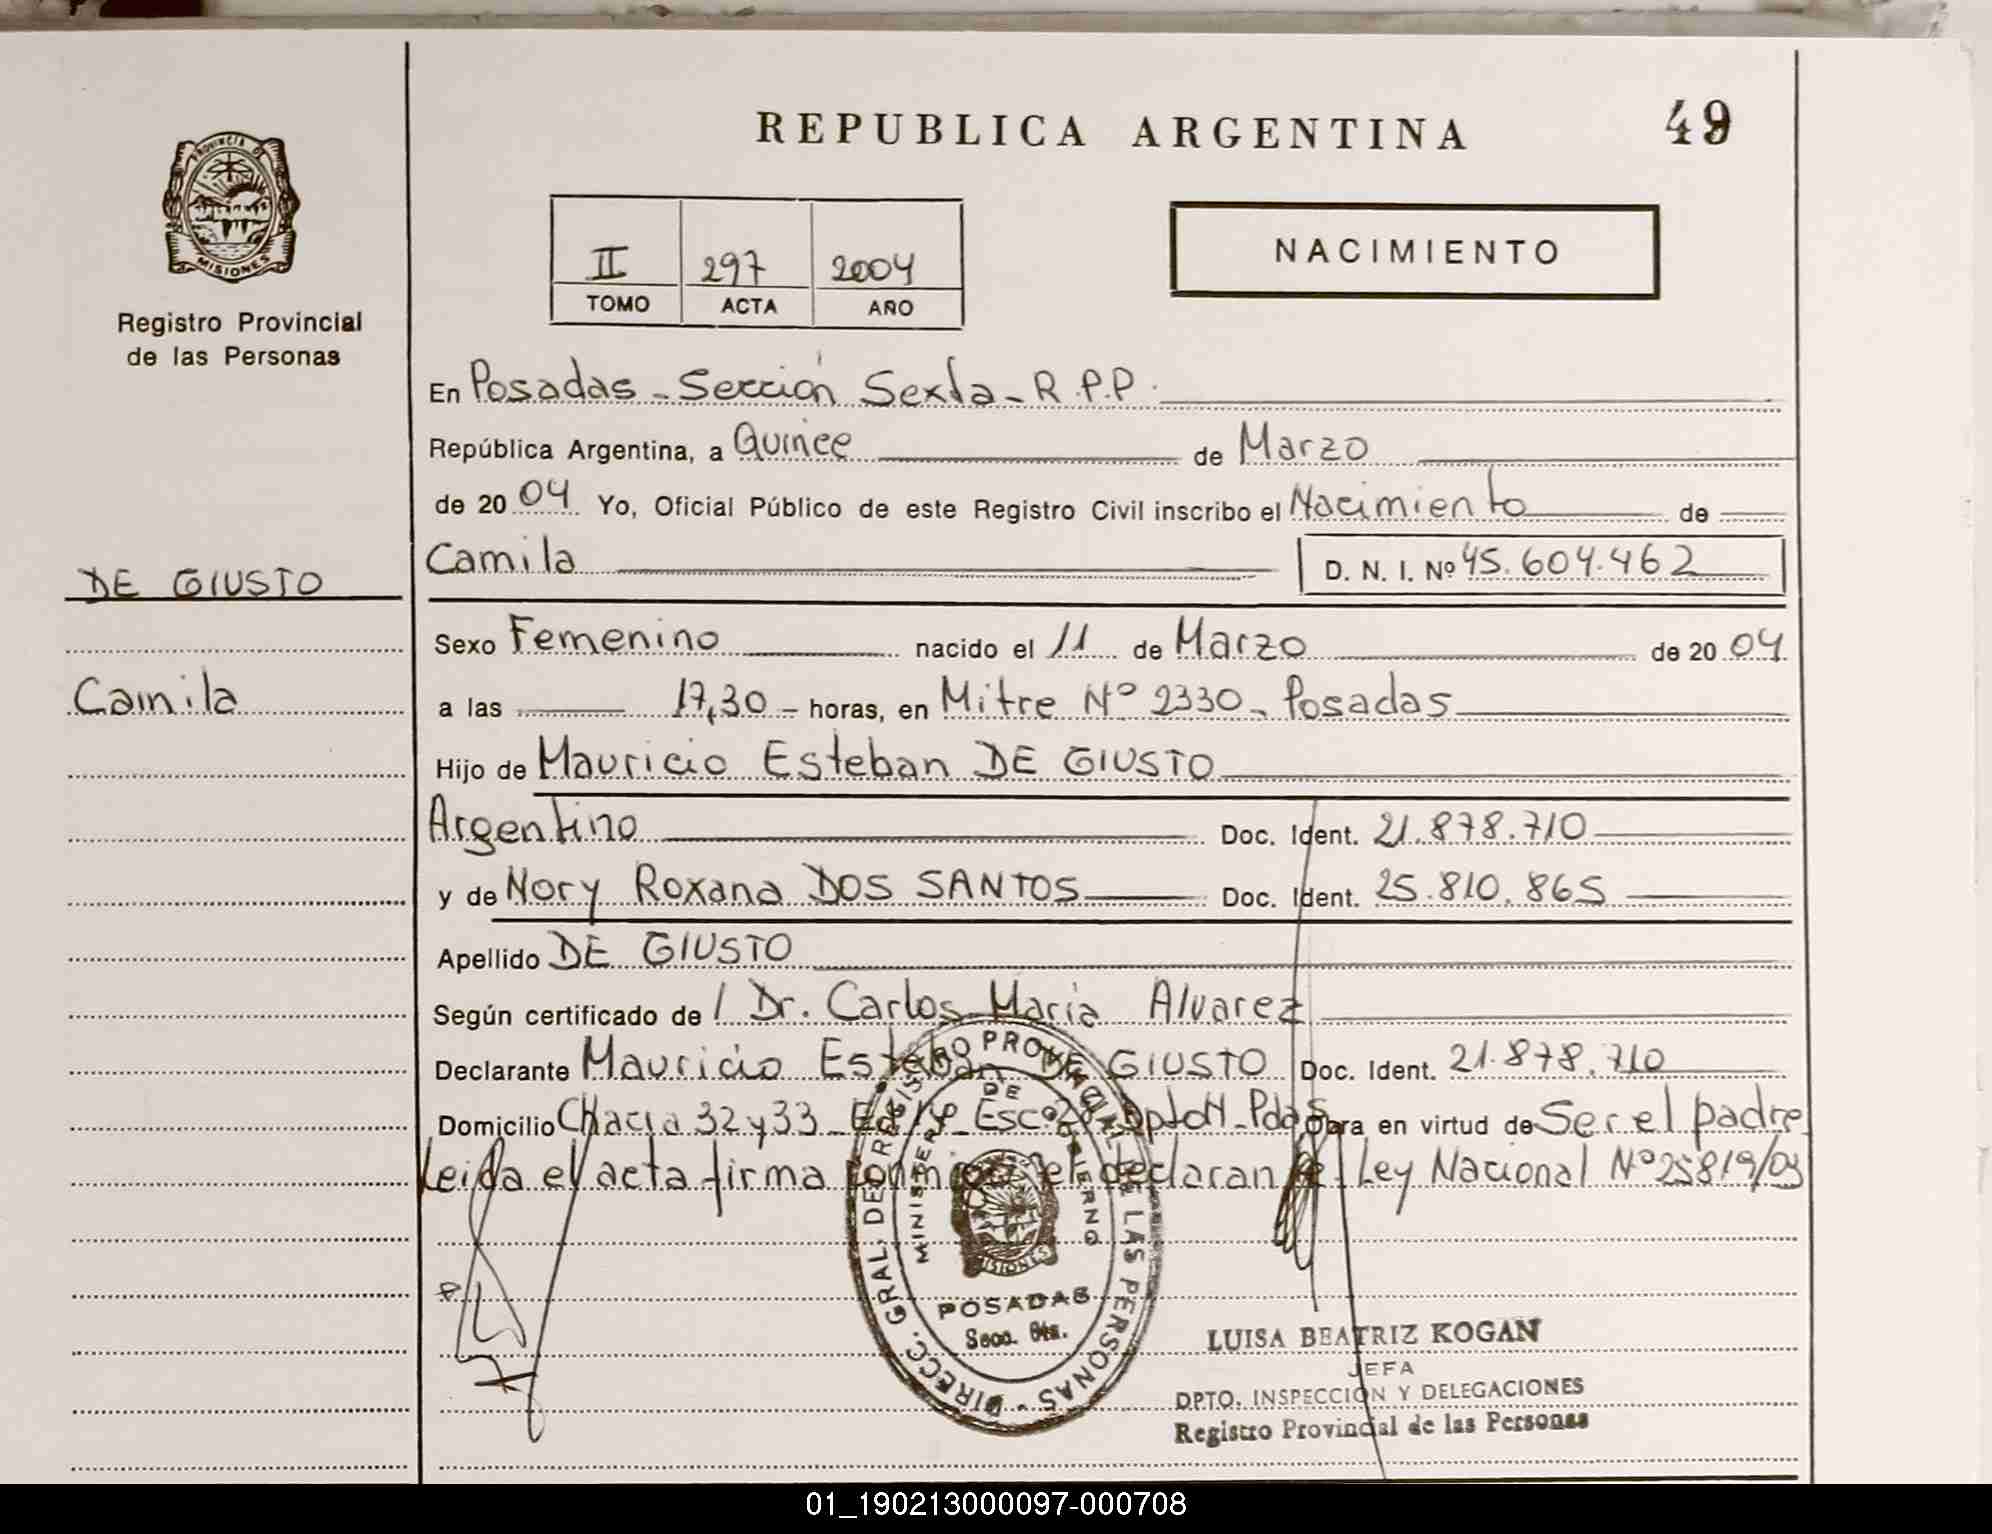 REPUBLICA ARGENTINA
49
PROVINCIA DE
MISIONES
Registro Provincial
de las Personas
II 297 2004
TOMO ACTA AÑO
NACIMIENTO
En Posadas - Sección Sexta - R.P.P.
República Argentina, a Quince de Marzo
de 2004 Yo, Oficial Público de este Registro Civil inscribo el Nacimiento de
Camila D. N. I. Nº 45.604.462
DE GIUSTO
Camila
Sexo Femenino nacido el 11 de Marzo de 2004
a las 17,30 - horas, en Mitre Nº 2330 - Posadas
Hijo de Mauricio Esteban DE GIUSTO
Argentino Doc. Ident. 21.878.710
y de Nory Roxana DOS SANTOS Doc. Ident. 25.810.865
Apellido DE GIUSTO
Según certificado de Dr. Carlos María Alvarez
Declarante Mauricio Esteban DE GIUSTO Doc. Ident. 21.878.710
Domicilio Chacra 32 y 33 Esc. Dpto H - Pdas Obra en virtud de Ser el padre
Leida el acta firma conmigo el declaran Ley Nacional Nº 25819/03
DIRECC. GRAL. DE REGISTRO PROVINCIAL DE LAS PERSONAS
MINISTERIO DE GOBIERNO
MISIONES
POSADAS
Secc. 6ta.
LUISA BEATRIZ KOGAN
JEFA
DPTO. INSPECCION Y DELEGACIONES
Registro Provincial de las Personas
01_190213000097-000708